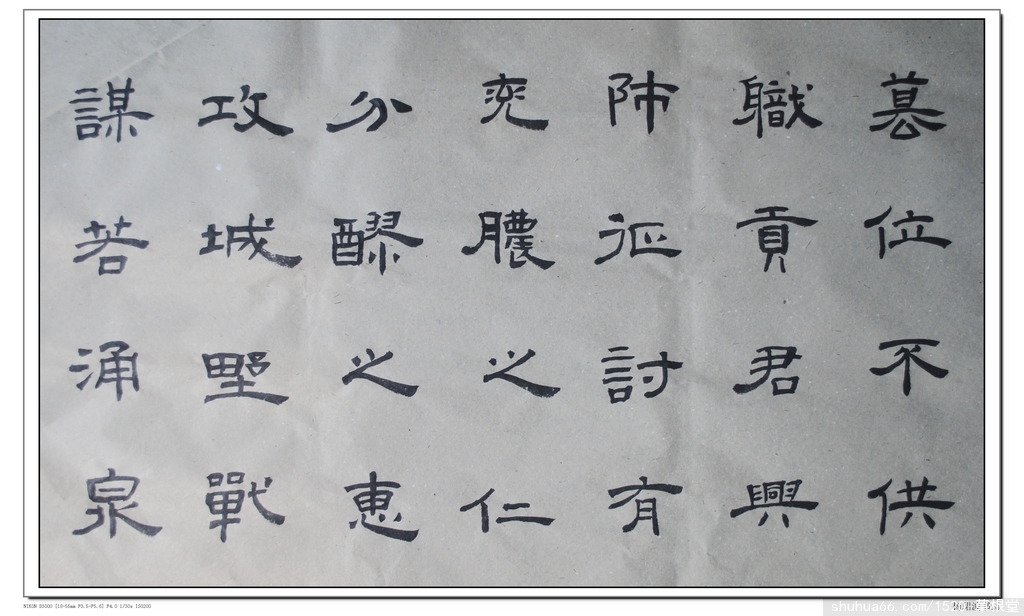 篡位不供
職貢君興
師征討有
兗膿之仁
分醪之惠
攻城野戰
謀若涌泉
NIKON D3000 [18-55mm F3.5-F5.6] F4.0 1/30s ISO200
shuhua66.com